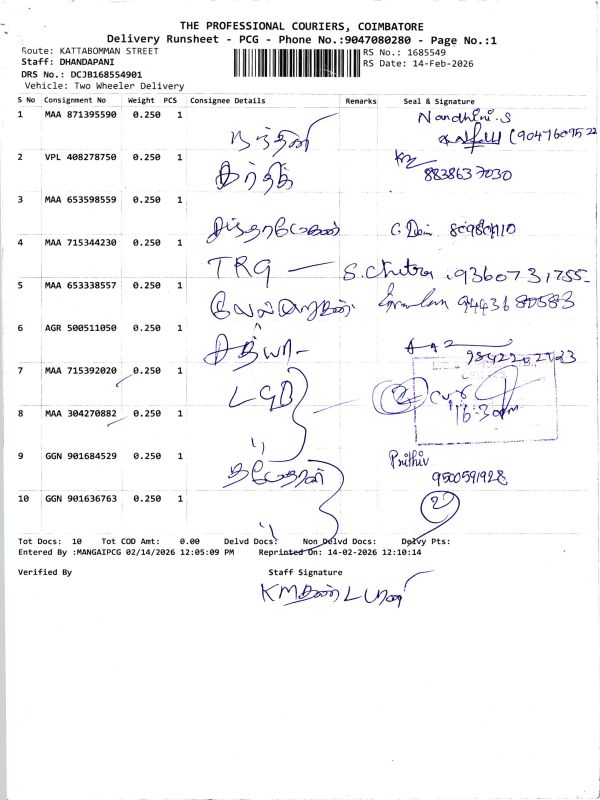 THE PROFESSIONAL COURIERS, COIMBATORE
Delivery Runsheet - PCG - Phone No.:9047080280 - Page No.:1
Route: KATTABOMMAN STREET RS No.: 1685549
Staff: DHANDAPANI RS Date: 14-Feb-2026
DRS No.: DCJB168554901
Vehicle: Two Wheeler Delivery
S No Consignment No Weight PCS Consignee Details Remarks Seal & Signature
1 MAA 871395590 0.250 1 Nandhini.S
நந்தினி
2 VPL 408278750 0.250 1
கார்திக் 8838637030
3 MAA 653598559 0.250 1
4 MAA 715344230 0.250 1
TRG — S. Chitra . 9360731755
5 MAA 653338557 0.250 1
வேல்முருகன் 9443680583
6 AGR 500511050 0.250 1
சத்யா -
7 MAA 715392020 0.250 1
LGB
16:30pm
8 MAA 304270882 0.250 1
〃
9 GGN 901684529 0.250 1 Prithiv
9500591928
10 GGN 901636763 0.250 1 2
〃
Tot Docs: 10 Tot COD Amt: 0.00 Delvd Docs: Non Delvd Docs: Delvy Pts:
Entered By :MANGAIPCG 02/14/2026 12:05:09 PM Reprinted On: 14-02-2026 12:10:14
Verified By Staff Signature